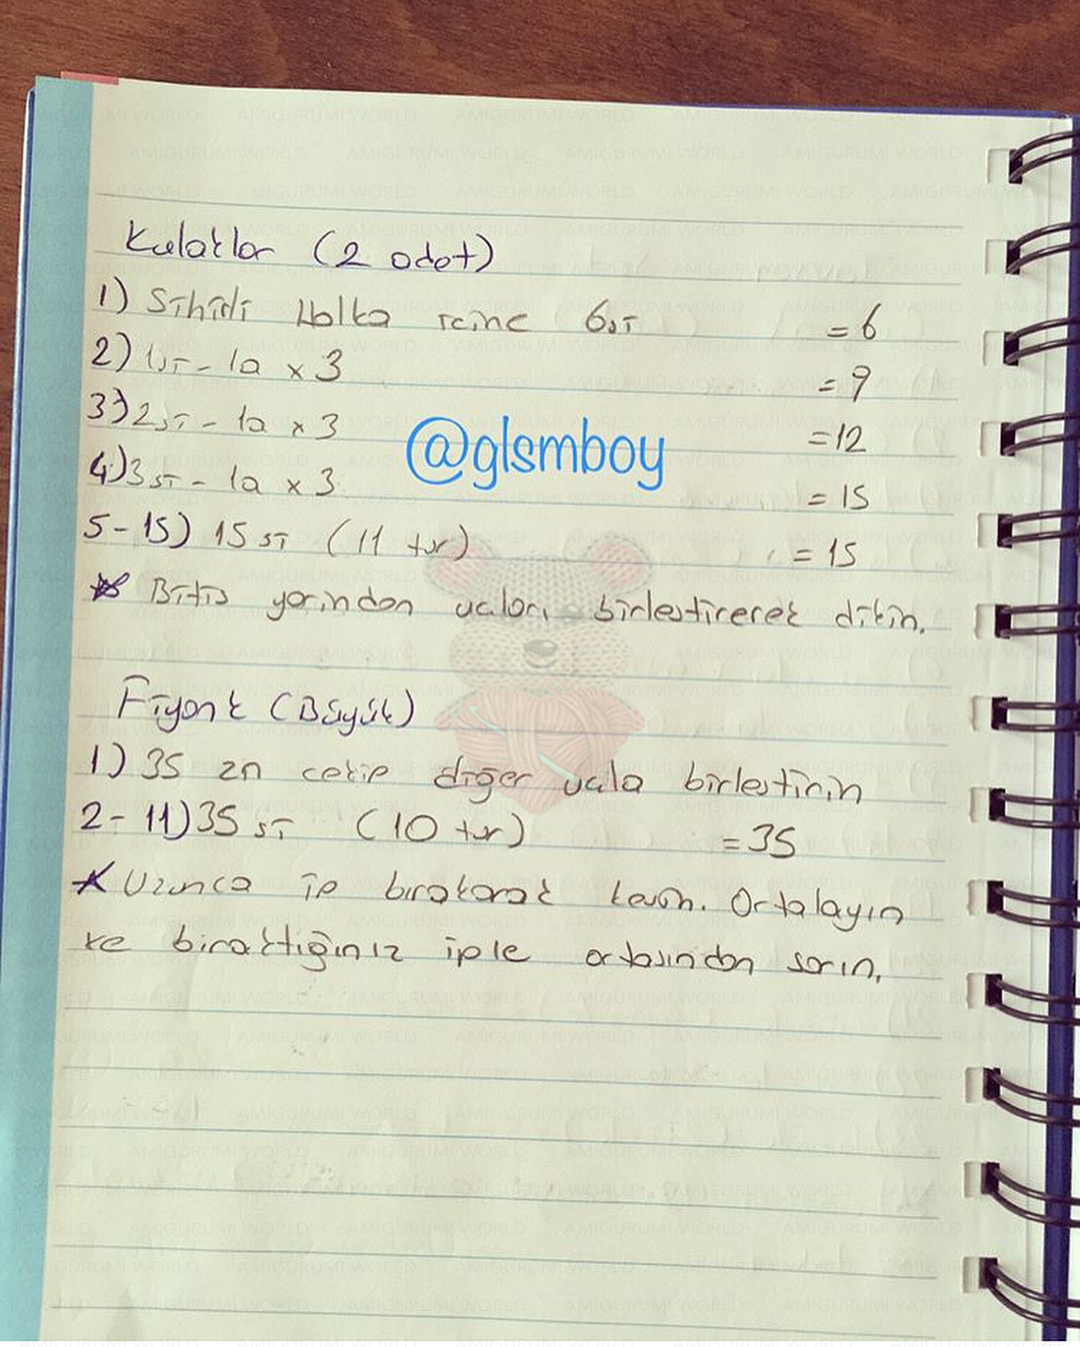 Kulaklar (2 adet)
1) Sihirli Halka içine 6sı =6
2) 1sı - 1a x 3 =9
3) 2sı - 1a x 3 =12
@glsmboy
4.) 3sı - 1a x 3 =15
5-15) 15 sı (11 tur) =15
* Bitiş yerinden uçları birleştirerek dikin.
Fiyonk (Büyük)
1) 35 zn çekip diğer uçla birleştirin
2-11) 35 sı (10 tur) =35
* Uzunca ip bırakarak kesin. Ortalayın
ve bıraktığınız iple ortasından sarın.
AMIGURUMI WORLD